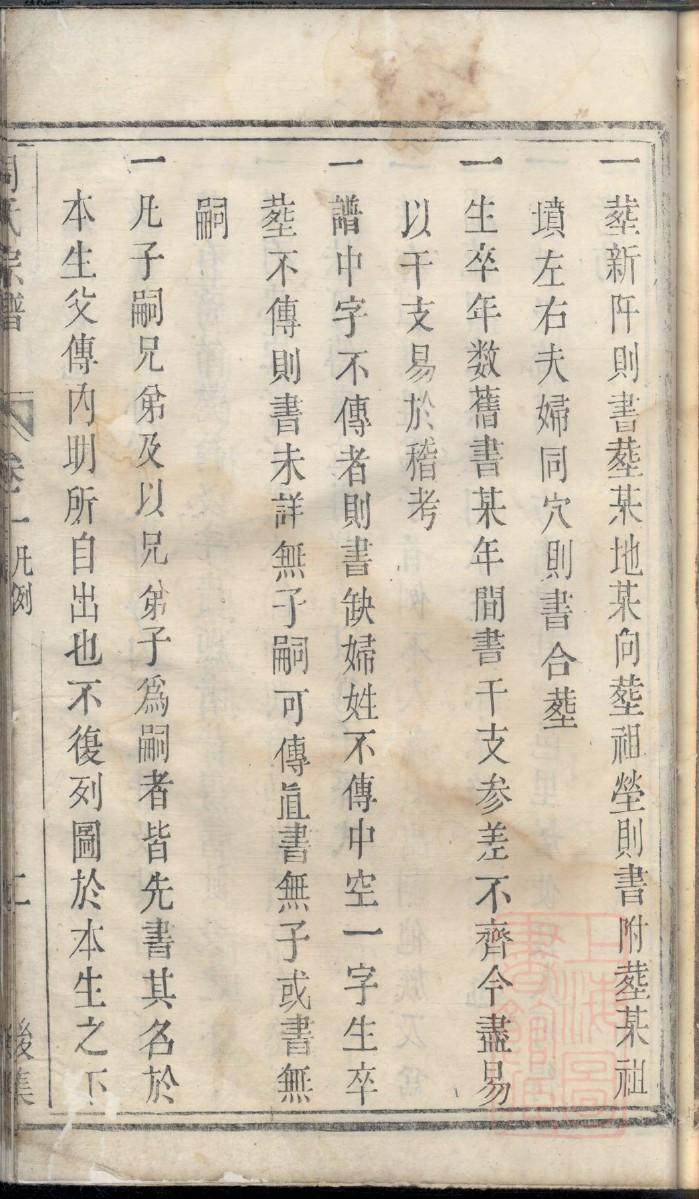 一葬新阡則書葬某地某向葬祖塋則書附葬某祖
墳左右夫婦同穴則書合葬
一生卒年数舊書某年間書干支参差不齊今盡易
以干支易於稽考
一譜中字不傳者則書缺婦姓不傳中空一字生卒
葬不傳則書未詳無子嗣可傳直書無子或書無
嗣
一凡子嗣兄弟及以兄弟子爲嗣者皆先書其名於
本生父傳內明所自出也不復列圖於本生之下
氏宗譜 卷一 凡例
上海圖書館藏